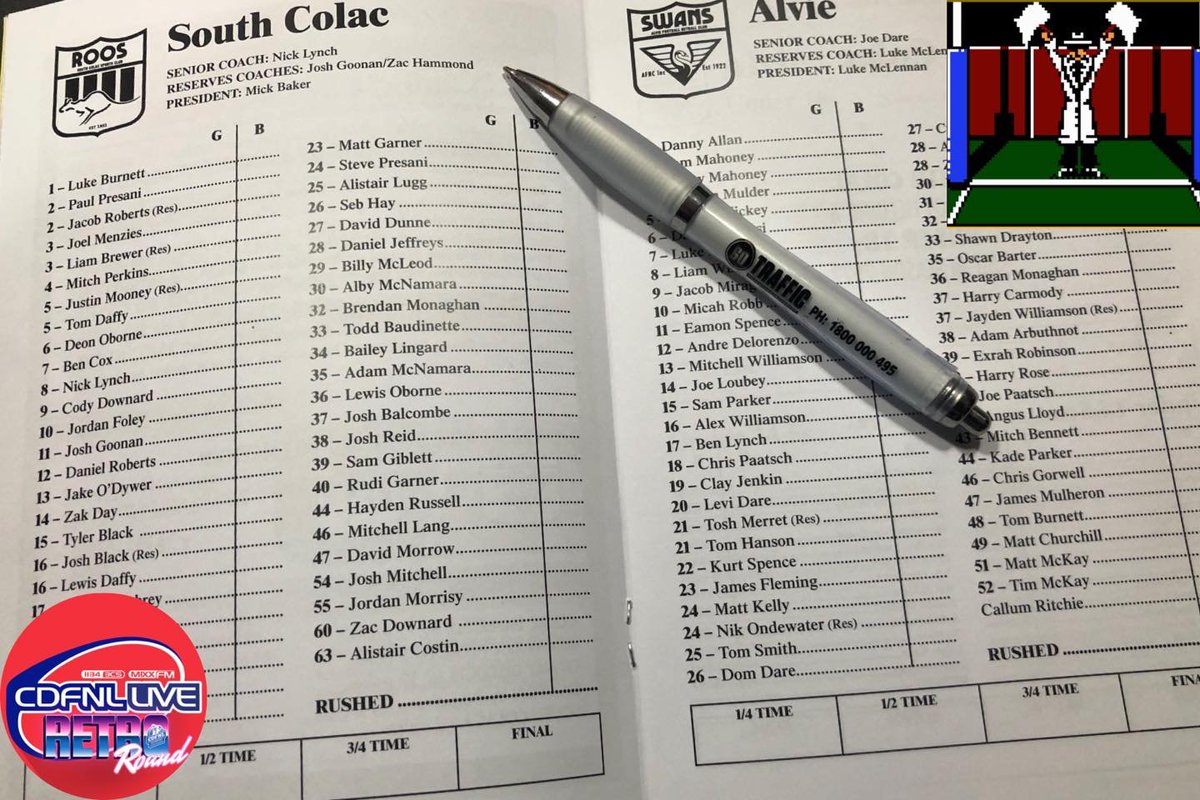 ROOS
SOUTH COLAC SPORTS CLUB
South Colac
SENIOR COACH: Nick Lynch
RESERVES COACHES: Josh Goonan/Zac Hammond
PRESIDENT: Mick Baker
G B
1 – Luke Burnett
2 – Paul Presani
2 – Jacob Roberts (Res)
3 – Joel Menzies
3 – Liam Brewer (Res)
4 – Mitch Perkins
5 – Justin Mooney (Res)
5 – Tom Daffy
6 – Deon Oborne
7 – Ben Cox
8 – Nick Lynch
9 – Cody Downard
10 – Jordan Foley
11 – Josh Goonan
12 – Daniel Roberts
13 – Jake O'Dywer
14 – Zak Day
15 – Tyler Black
16 – Josh Black (Res)
16 – Lewis Daffy
17
G B
23 – Matt Garner
24 – Steve Presani
25 – Alistair Lugg
26 – Seb Hay
27 – David Dunne
28 – Daniel Jeffreys
29 – Billy McLeod
30 – Alby McNamara
32 – Brendan Monaghan
33 – Todd Baudinette
34 – Bailey Lingard
35 – Adam McNamara
36 – Lewis Oborne
37 – Josh Balcombe
38 – Josh Reid
39 – Sam Giblett
40 – Rudi Garner
44 – Hayden Russell
46 – Mitchell Lang
47 – David Morrow
54 – Josh Mitchell
55 – Jordan Morrisy
60 – Zac Downard
63 – Alistair Costin
RUSHED
1/2 TIME 3/4 TIME FINAL
SWANS
ALVIE FOOTBALL NETBALL CLUB
AFNC Inc Est 1922
Alvie
SENIOR COACH: Joe Dare
RESERVES COACH: Luke
PRESIDENT: Luke McLennan
G B
Danny Allan
Mahoney
Mahoney
Mulder
5
6
7 – Luke
8 – Liam
9 – Jacob
10 – Micah Robb
11 – Eamon Spence
12 – Andre Delorenzo
13 – Mitchell Williamson
14 – Joe Loubey
15 – Sam Parker
16 – Alex Williamson
17 – Ben Lynch
18 – Chris Paatsch
19 – Clay Jenkin
20 – Levi Dare
21 – Tosh Merret (Res)
21 – Tom Hanson
22 – Kurt Spence
23 – James Fleming
24 – Matt Kelly
24 – Nik Ondewater (Res)
25 – Tom Smith
26 – Dom Dare
27 – C
28 – A
28 – Z
30 –
31 –
32 –
33 – Shawn Drayton
35 – Oscar Barter
36 – Reagan Monaghan
37 – Harry Carmody
37 – Jayden Williamson (Res)
38 – Adam Arbuthnot
39 – Exrah Robinson
Harry Rose
Joe Paatsch
Angus Lloyd
43 – Mitch Bennett
44 – Kade Parker
46 – Chris Gorwell
47 – James Mulheron
48 – Tom Burnett
49 – Matt Churchill
51 – Matt McKay
52 – Tim McKay
Callum Ritchie
RUSHED
1/4 TIME 1/2 TIME 3/4 TIME FINA
TRAFFIC PH: 1800 000 495
1134 3CS MIXX FM
CDFNL LIVE
RETRO
Round